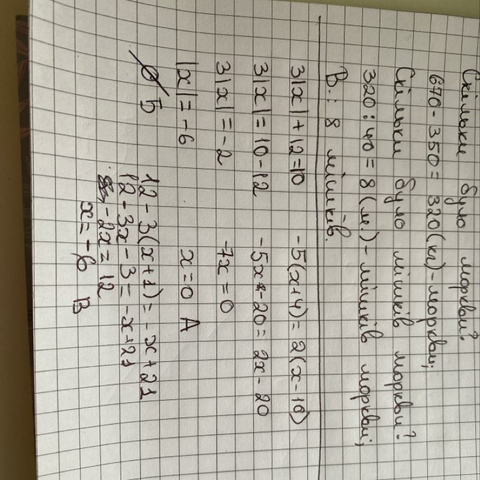 Скільки було моркви?
670-350= 320(кг)-моркви;
Скільки було мішків моркви?
320:40=8(м.)-мішків моркви;
В.: 8 мішків.
3|x|+12=10
3|x|=10-12
3|x|=-2
|x|=-6
-5(x+4)=2(x-10)
-5x-20=2x-20
-7x=0
x=0 А
5
12-3(x+1)=-x+21
12-3x-3=-x+21
-2x=12
x=-6 В